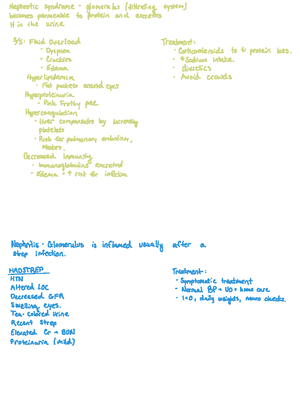 Nephrotic syndrome - glomerulus (filtering system)
becomes permeable to protein and excretes
it in the urine
S/S: Fluid Overload
- Dyspnea
- Crackles
- Edema
Hyperlipidemia
- Fat pockets around eyes
Hyperproteinuria
- Pink Frothy pee
Hypercoagulation
- Liver compensates by increasing
platelets
- Risk for pulmonary embolism,
Decreased Immunity
- Immunoglobulins excreted
- Edema = ↑ risk for infection
Treatment:
- Corticosteroids to ↓ protein loss.
- Sodium intake.
- Diuretics
- Avoid crowds
Nephritis - Glomerulus is inflamed usually after a
strep infection.
HADSTREP
HTN
Altered LOC
Decreased GFR
Swelling eyes.
Tea-colored urine
Recent Strep
Elevated Cr + BUN
Proteinuria (mild)
Treatment:
- Symptomatic treatment
- Normal BP + UO = home care
- I+O, daily weights, neuro checks.